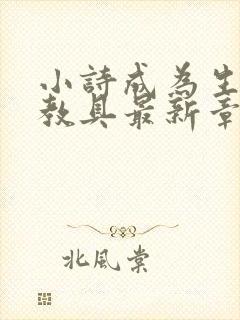 小詩成為生
教具最新章
北風棠